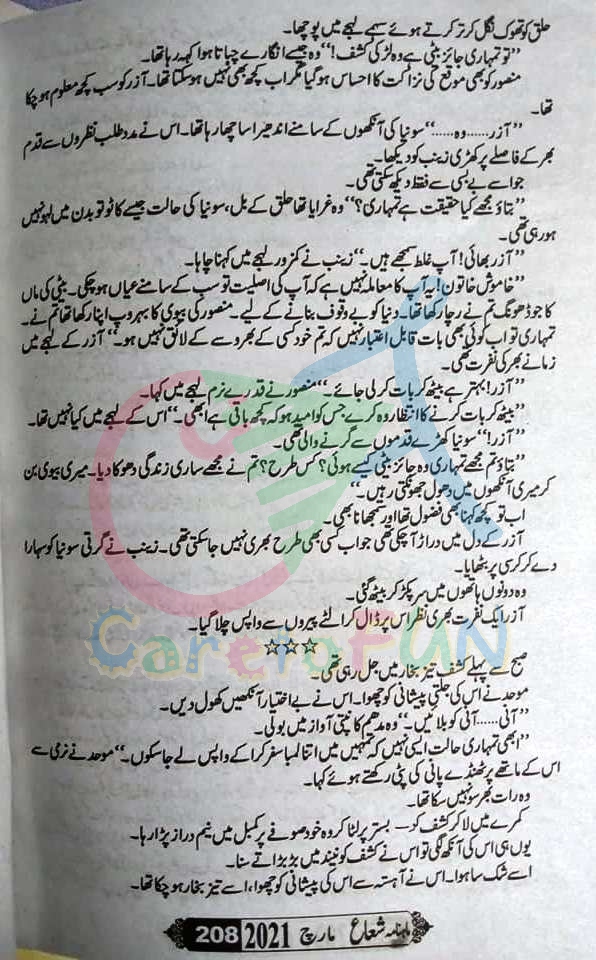 حلق کو تھوک نگل کر تر کرتے ہوئے سہمے لہجے میں پوچھا۔
”تو تمہاری جائز بیٹی ہے وہ لڑکی کشف!“ وہ جیسے انگارے چباتا ہوا کہہ رہا تھا۔
منصور کو بھی موقع کی نزاکت کا احساس ہو گیا مگر اب کچھ بھی نہیں ہو سکتا تھا۔ آزر کو سب کچھ معلوم ہو چکا
تھا۔
”آزر...... وہ......“ سونیا کی آنکھوں کے سامنے اندھیرا سا چھا رہا تھا۔ اس نے مدد طلب نظروں سے قدم
بھر کے فاصلے پر کھڑی زینب کو دیکھا۔
جو اسے بے بسی سے فقط دیکھ سکتی تھی۔
”بتاؤ مجھے کیا حقیقت ہے تمہاری؟“ وہ غرایا تھا حلق کے بل، سونیا کی حالت جیسے کاٹو تو بدن میں لہو نہیں
ہو رہی تھی۔
”آزر بھائی! آپ غلط سمجھے ہیں۔“ زینب نے کمزور لہجے میں کہنا چاہا۔
”خاموش خاتون! یہ آپ کا معاملہ نہیں ہے کہ آپ کی اصلیت تو سب کے سامنے عیاں ہو چکی۔ بیٹی کی ماں
کا جو ڈھونگ تم نے رچا رکھا تھا۔ دنیا کو بے وقوف بنانے کے لیے۔ منصور کی بیوی کا بہروپ اپنا رکھا تھا تم نے۔
تمہاری تو اب کوئی بھی بات قابل اعتبار نہیں کہ تم خود کسی کے بھروسے کے لائق نہیں ہو۔“ آزر کے لہجے میں
زمانے بھر کی نفرت تھی۔
”آزر! بہتر ہے بیٹھ کر بات کر لی جائے۔“ منصور نے قدرے نرم لہجے میں کہا۔
”بیٹھ کر بات کرنے کا انتظار وہ کرے جس کو امید ہو کہ کچھ باقی ہے ابھی۔“ اس کے لہجے میں کیا نہیں تھا۔
”آزر!“ سونیا کھڑے قدموں سے گرنے والی تھی۔
”بتاؤ تم مجھے تمہاری وہ جائز بیٹی کیسے ہوئی؟ کس طرح؟ تم نے مجھے ساری زندگی دھوکا دیا۔ میری بیوی بن
کر میری آنکھوں میں دھول جھونکتی رہیں۔“
اب تو کچھ کہنا بھی فضول تھا اور سمجھانا بھی۔
آزر کے دل میں دراڑ آ چکی تھی جو اب کسی بھی طرح بھری نہیں جا سکتی تھی۔ زینب نے گرتی سونیا کو سہارا
دے کر کرسی پر بٹھایا۔
وہ دونوں ہاتھوں میں سر پکڑ کر بیٹھ گئی۔
آزر ایک نفرت بھری نظر اس پر ڈال کر الٹے پیروں سے واپس چلا گیا۔
☆☆☆
CaretoFUN
صبح سے پہلے کشف تیز بخار میں جل رہی تھی۔
موحد نے اس کی جلتی پیشانی کو چھوا۔ اس نے بے اختیار آنکھیں کھول دیں۔
”آنی...... آنی کو بلائیں۔“ وہ مدھم کانپتی آواز میں بولی۔
”ابھی تمہاری حالت ایسی نہیں کہ تمہیں میں اتنا لمبا سفر کرا کے واپس لے جا سکوں۔“ موحد نے نرمی سے
اس کے ماتھے پر ٹھنڈے پانی کی پٹی رکھتے ہوئے کہا۔
وہ رات بھر سو نہیں سکا تھا۔
کمرے میں لا کر کشف کو۔ بستر پر لٹا کر وہ خود صوفے پر کمبل میں نیم دراز پڑا رہا۔
یوں ہی اس کی آنکھ لگی تو اس نے کشف کو نیند میں بڑبڑاتے سنا۔
اسے شک سا ہوا۔ اس نے آہستہ سے اس کی پیشانی کو چھوا، اسے تیز بخار ہو چکا تھا۔
ماہنامہ شعاع مارچ 2021 208